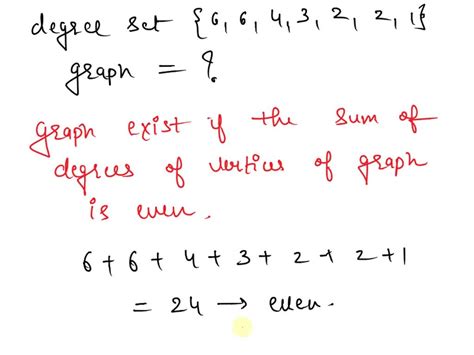 degree set {6, 6, 4, 3, 2, 2, 1}
graph = ?
graph exist if the sum of
degrees of vertices of graph
is even.
6 + 6 + 4 + 3 + 2 + 2 + 1
= 24 → even.